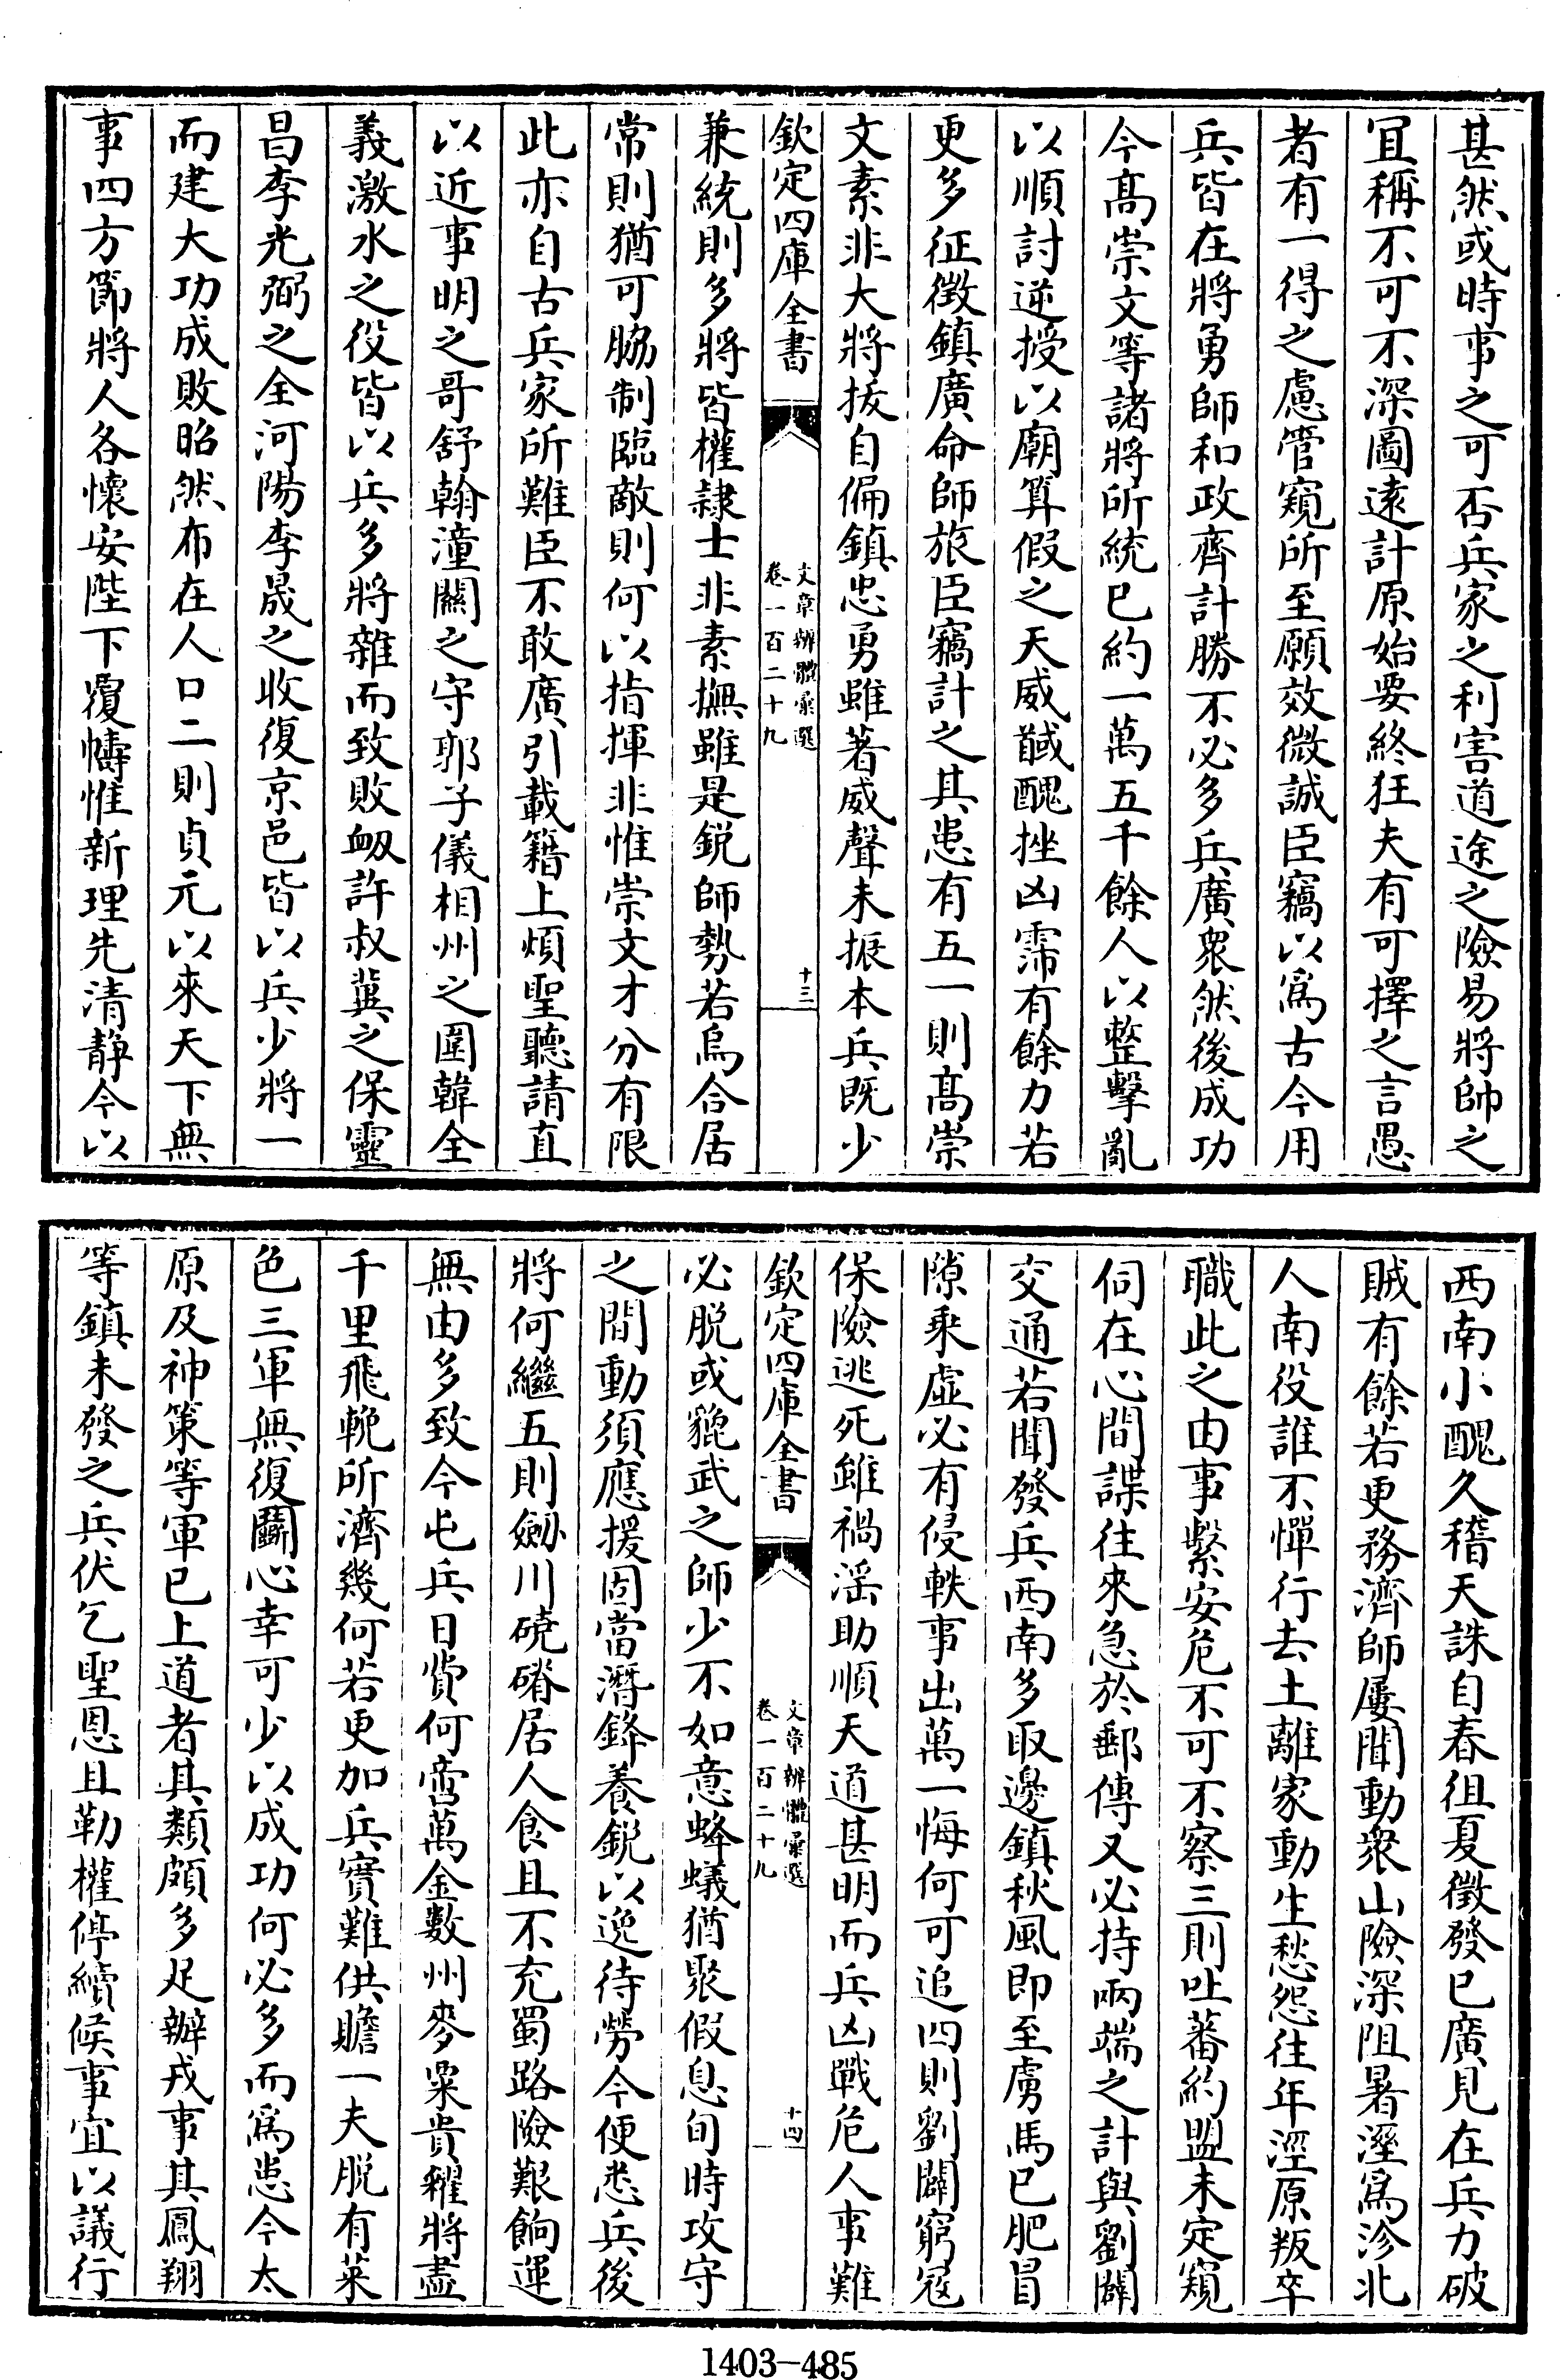 甚然或時事之可否兵家之利害道途之險易將帥之
宜稱不可不深圖遠計原始要終狂夫有可擇之言愚
者有一得之慮管窺所至願效微誠臣竊以爲古今用
兵皆在將勇師和政齊計勝不必多兵廣衆然後成功
今髙崇文等諸將所統已約一萬五千餘人以整擊亂
以順討逆授以廟算假之天威馘醜挫凶霈有餘力若
更多征徴鎮廣命師旅臣竊計之其患有五一則髙崇
文素非大將拔自偏鎮忠勇雖著威聲未振本兵既少
欽定四庫全書
文章辨體彙選
卷一百二十九
十三
兼統則多將皆權隷士非素撫雖是鋭師勢若烏合居
常則猶可脇制臨敵則何以指揮非惟崇文才分有限
此亦自古兵家所難臣不敢廣引載籍上煩聖聽請直
以近事明之哥舒翰潼關之守郭子儀相州之圍韓全
義激水之役皆以兵多將雜而致敗衂許叔冀之保靈
昌李光弼之全河陽李晟之收復京邑皆以兵少將一
而建大功成敗昭然布在人口二則貞元以來天下無
事四方節將人各懷安陛下覆幬惟新理先清靜今以
西南小醜久稽天誅自春徂夏徵發已廣見在兵力破
賊有餘若更務濟師屢聞動衆山險深阻暑溼爲沴北
人南役誰不憚行去土離家動生愁怨往年涇原叛卒
職此之由事繫安危不可不察三則吐蕃約盟未定窺
伺在心間諜往來急於郵傳又必持兩端之計與劉闢
交通若聞發兵西南多取邊鎮秋風即至虜馬已肥冒
隙乘虛必有侵軼事出萬一悔何可追四則劉闢窮寇
保險逃死雖禍淫助順天道甚明而兵凶戰危人事難
欽定四庫全書
文章辨體彙選
卷一百二十九
十四
必脱或貔武之師少不如意蜂蟻猶聚假息旬時攻守
之間動須應援固當潛鋒養鋭以逸待勞今便悉兵後
將何繼五則劒川磽瘠居人食且不充蜀路險艱餉運
無由多致今屯兵日費何啻萬金數州麥粟貴糴將盡
千里飛輓所濟幾何若更加兵實難供贍一夫脱有菜
色三軍無復鬬心幸可少以成功何必多而爲患今太
原及神策等軍已上道者其類頗多足辦戎事其鳳翔
等鎮未發之兵伏乞聖恩且勒權停續候事宜以議行
1403-485